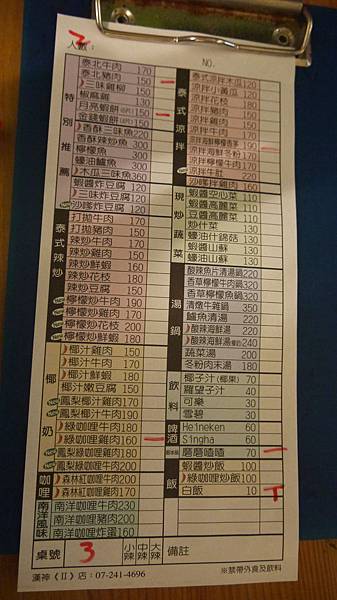 人數： 2
NO.
特別推薦
泰北牛肉 170
泰北豬肉 150
三味雞柳 150
椒麻雞 130
月亮蝦餅 150
金錢蝦餅 150
香酥三味魚 220
香酥炒魚 300
檸檬魚 300
蠔油鱸魚 300
木瓜三味魚 360
蝦醬炸豆腐 120
三味炸豆腐 120
沙嗲炸豆腐 120
泰式辣炒
打拋牛肉 170
打拋豬肉 150
辣炒牛肉 170
辣炒雞肉 150
辣炒鮮蝦 160
辣炒花枝 180
辣炒豆腐 130
檸檬炒牛肉 190
檸檬炒雞肉 170
檸檬炒花枝 200
檸檬炒鮮蝦 180
椰奶
椰汁雞肉 150
椰汁牛肉 170
椰汁鮮蝦 180
椰汁嫩豆腐 150
鳳梨椰汁雞肉 170
鳳梨椰汁牛肉 190
綠咖哩牛肉 180
綠咖哩雞肉 160
鳳梨綠咖哩雞肉 180
鳳梨綠咖哩牛肉 200
咖哩
森林紅咖哩牛肉 200
森林紅咖哩雞肉 170
南洋風味
南洋咖哩牛肉 230
南洋咖哩豬肉 200
南洋咖哩炸蛋 160
桌號 3
小辣
中辣
大辣
備註
泰式涼拌
泰式涼拌木瓜 120
涼拌小黃瓜 120
涼拌花枝 180
涼拌豬肉 150
涼拌雞肉 150
涼拌牛肉 170
涼拌海鮮檸檬香茅 190
涼拌海鮮冬粉 170
涼拌檸檬牛肉 170
涼拌牛肚 120
沙嗲炸雞肉 160
現炒蔬菜
蝦醬空心菜 110
蝦醬高麗菜 110
豆醬高麗菜 110
炒什菜 130
蠔油什錦菇 130
蝦醬山蘇 130
蠔油山蘇 130
湯鍋
酸辣魚片清湯鍋 220
香草檸檬魚湯鍋 320
香草檸檬魚鍋 320
清燉牛雜鍋 350
鱸魚清湯 220
酸辣海鮮湯 220
酸辣海鮮湯 240
蔬菜湯 200
冬粉肉末湯 180
飲料
椰子汁(椰果) 70
羅望子汁 40
可樂 30
雪碧 30
啤酒
Heineken 60
Singha 60
磨磨喳喳 70
飯
蝦醬炒飯 80
綠咖哩炒飯 100
白飯 10
漢神《II》店：07-241-4696
※禁帶外食及飲料